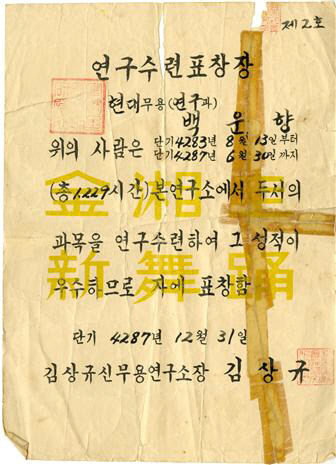 제2호
연구수련표창장
현대무용(연구과)
백운향
위의 사람은 단기4283년 8월 13일부터
단기4287년 6월 30일까지
(총1.229시간)본연구소에서 두서의
과목을 연구수련하여 그 성적이
우수하므로 자에 표창함
金湘圭
新舞踊
단기 4287년 12월 31일
김상규신무용연구소장 김상규